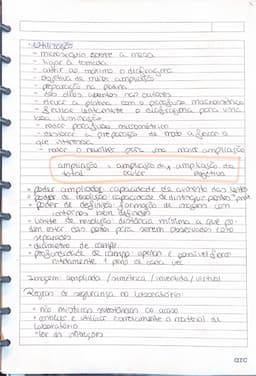 • Utilização
- microscópio sobre a mesa
- ligar à tomada
- abrir ao máximo o diafragma
- objetiva de menor ampliação
- preparação na platina
- dois olhos abertos nas oculares
- mover a platina com o parafuso macrométrico
- fechar lentamente o diafragma para uma boa iluminação
- rodar parafuso micrométrico
- a preparação de modo a focar o que interessa
- rodar o revólver para uma maior ampliação
ampliação total = ampliação da ocular x ampliação da objetiva
• poder ampliador: capacidade de aumento das lentes
• poder de resolução: capacidade de distinguir pontos
• poder de definição: formação de imagens com contornos bem definidos
• limite de resolução: distância mínima a que podem estar dois pontos para serem observados como separados
• diâmetro de campo
• profundidade de campo: apenas é possível focar nitidamente 1 plano de cada vez
Imagem ampliada / simétrica / invertida / virtual
Regras de segurança no laboratório:
• não misturar substâncias ao acaso
• e utilizar corretamente o material de laboratório
• ler as
arc